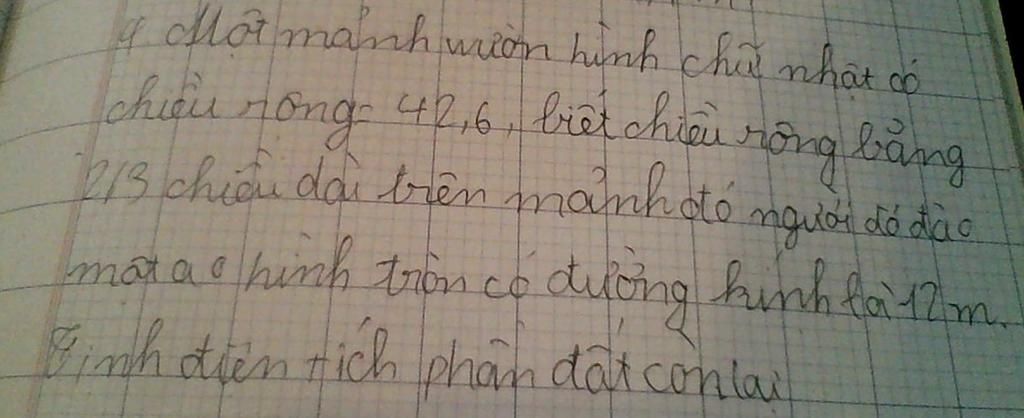 4 Một mảnh vườn hình chữ nhật có
chiều rộng= 42,6, biết chiều rộng bằng
2/3 chiều dài trên mảnh đó người đó đào
một ao hình tròn có đường kính là 12m.
Tính diện tích phần đất còn lại